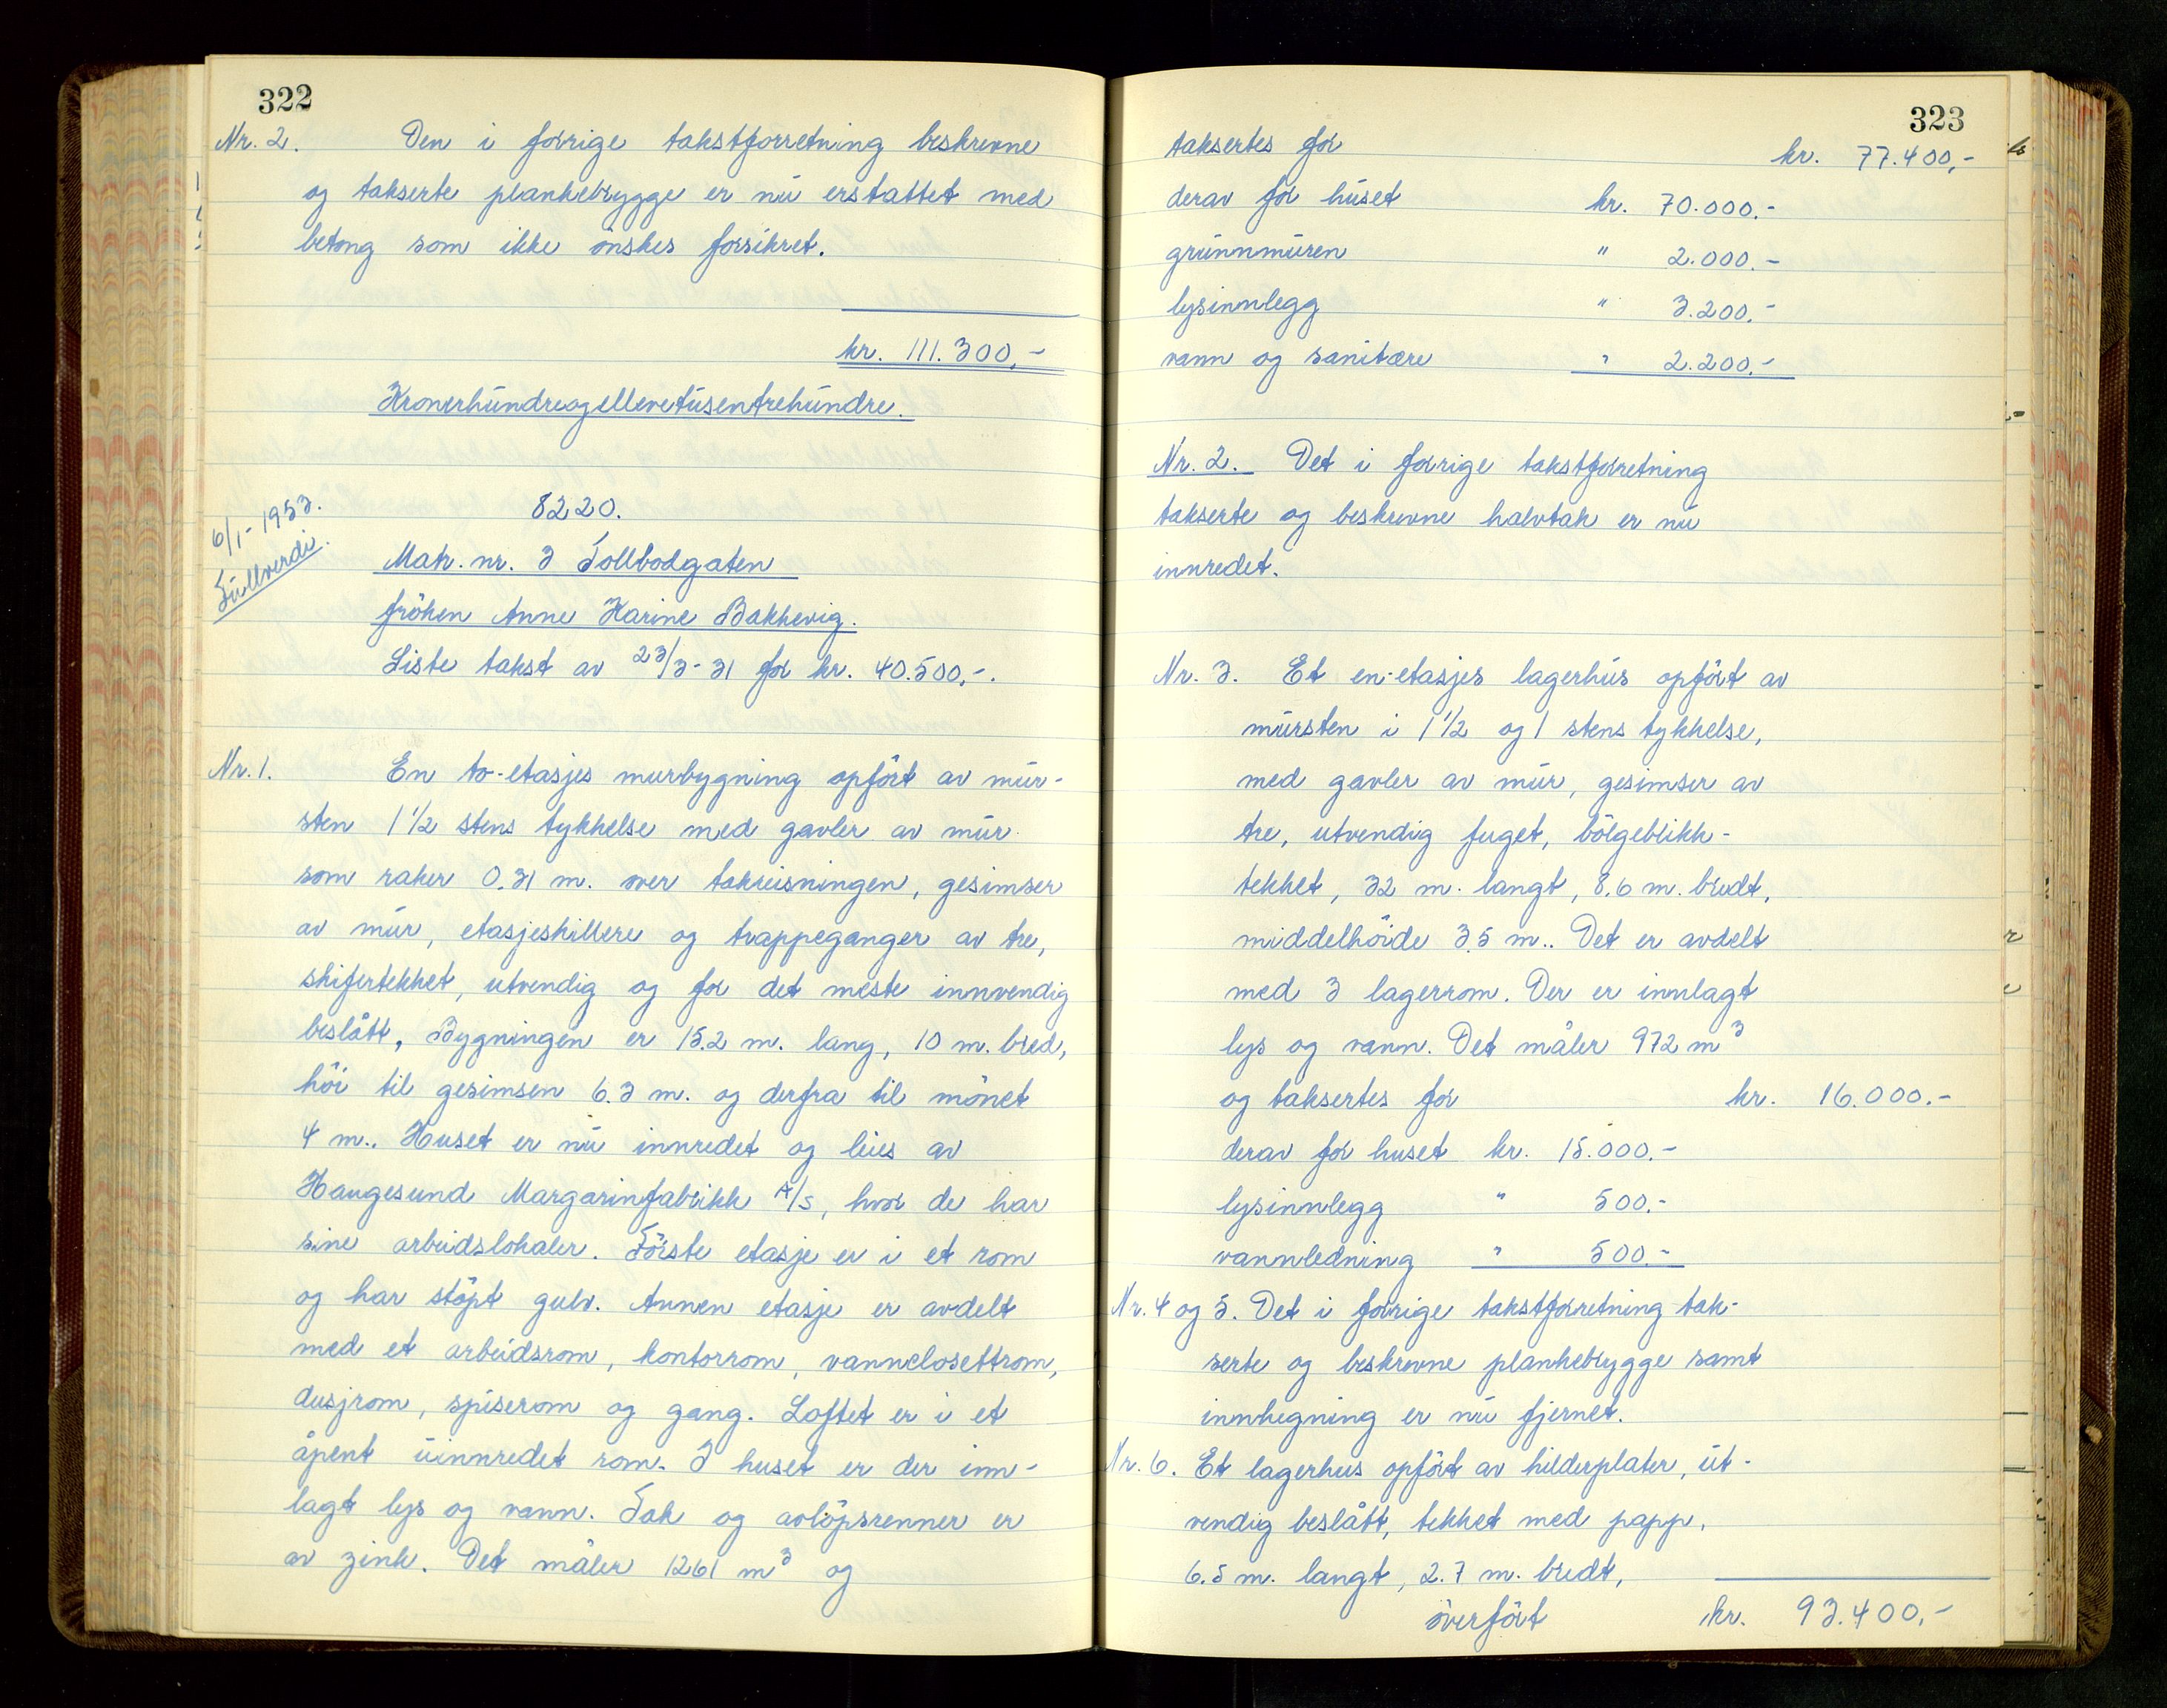 322
Nr. 2. Den i forrige takstforretning beskrevne
og takserte plankebrygge er nú erstattet med
betong som ikke önskes forsikret.
kr. 111.300,-
Kronerhúndreogellevetúsentrehúndre.
6/1-1953.
Fúllverdi.
8220.
Matr. nr. 3 Tollbodgaten
fröken Anne Karine Bakkevig.
Siste takst av 23/3-31 for kr. 40.500,-.
Nr. 1. En to-etasjes murbygning opfört av múr-
sten 1 1/2 stens tykkelse med gavler av múr
som raker 0.31 m. over takreisningen, gesimser
av múr, etasjeskillere og trappeganger av tre,
skifertekket, utvendig og for det meste innvendig
beslått, Bygningen er 15.2 m. lang, 10 m. bred,
höi til gesimsen 6.3 m. og derfra til mönet
4 m.. Huset er nú innredet og leies av
Haugesund Margarinfabrikk A/S, hvor de har
sine arbeidslokaler. Förste etasje er i et rom
og har stöpt gulv. Annen etasje er avdelt
med et arbeidsrom, kontorrom, vannclosettrom,
dusjrom, spiserom og gang. Loftet er i et
åpent úinnredet rom. I huset er der inn-
lagt lys og vann. Tak og avlöpsrenner er
av zink. Det måler 1261 m³ og
323
taksertes for kr. 77.400,-
derav for húset kr. 70.000.-
grúnnmúren " 2.000.-
lysinnlegg " 3.200.-
vann og sanitære " 2.200.-
Nr. 2. Det i forrige takstforretning
takserte og beskrevne halvtak er nú
innredet.
Nr. 3. Et en-etasjes lagerhús opfört av
múrsten i 1 1/2 og 1 stens tykkelse,
med gavler av múr, gesimser av
tre, utvendig fuget, bölgeblikk-
tekket, 32 m. langt, 8.6 m. bredt,
middelhöide 3.5 m.. Det er avdelt
med 3 lagerrom. Der er innlagt
lys og vann. Det måler 972 m³
og taksertes for kr. 16.000.-
derav for huset kr. 15.000.-
lysinnlegg " 500.-
vannledning " 500.-
Nr. 4 og 5. Det i forrige takstforretning tak-
serte og beskrevne plankebrygge samt
innhegning er nú fjernet.
Nr. 6. Et lagerhus opfört av hilderplater, út-
vendig beslått, tekket med papp,
6.5 m. langt, 2.7 m. bredt,
överfört kr. 93.400,-